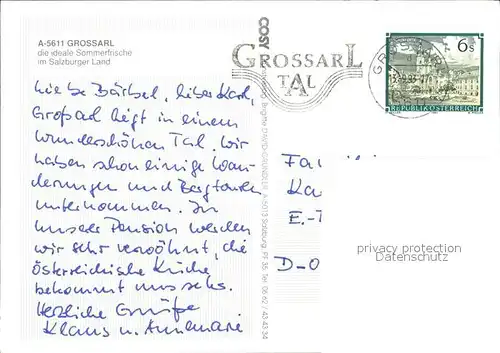 A-5611 GROSSARL
die ideale Sommerfrische
im Salzburger Land
COSY
GROSSARL
TAL
6s
REPUBLIK ÖSTERREICH
Liebe Bärbel, lieber Karl,
Großarl liegt in einem
wunderschönen Tal. Wir
haben schon einige Wan-
derungen und Bergtouren
unternommen. In
unserer Pension werden
wir sehr verwöhnt, die
österreichische Küche
bekommt uns sehr.
Herzliche Grüße
Klaus u. Annemarie
Fa
Ka
E.-T
D-O
privacy protection
Datenschutz